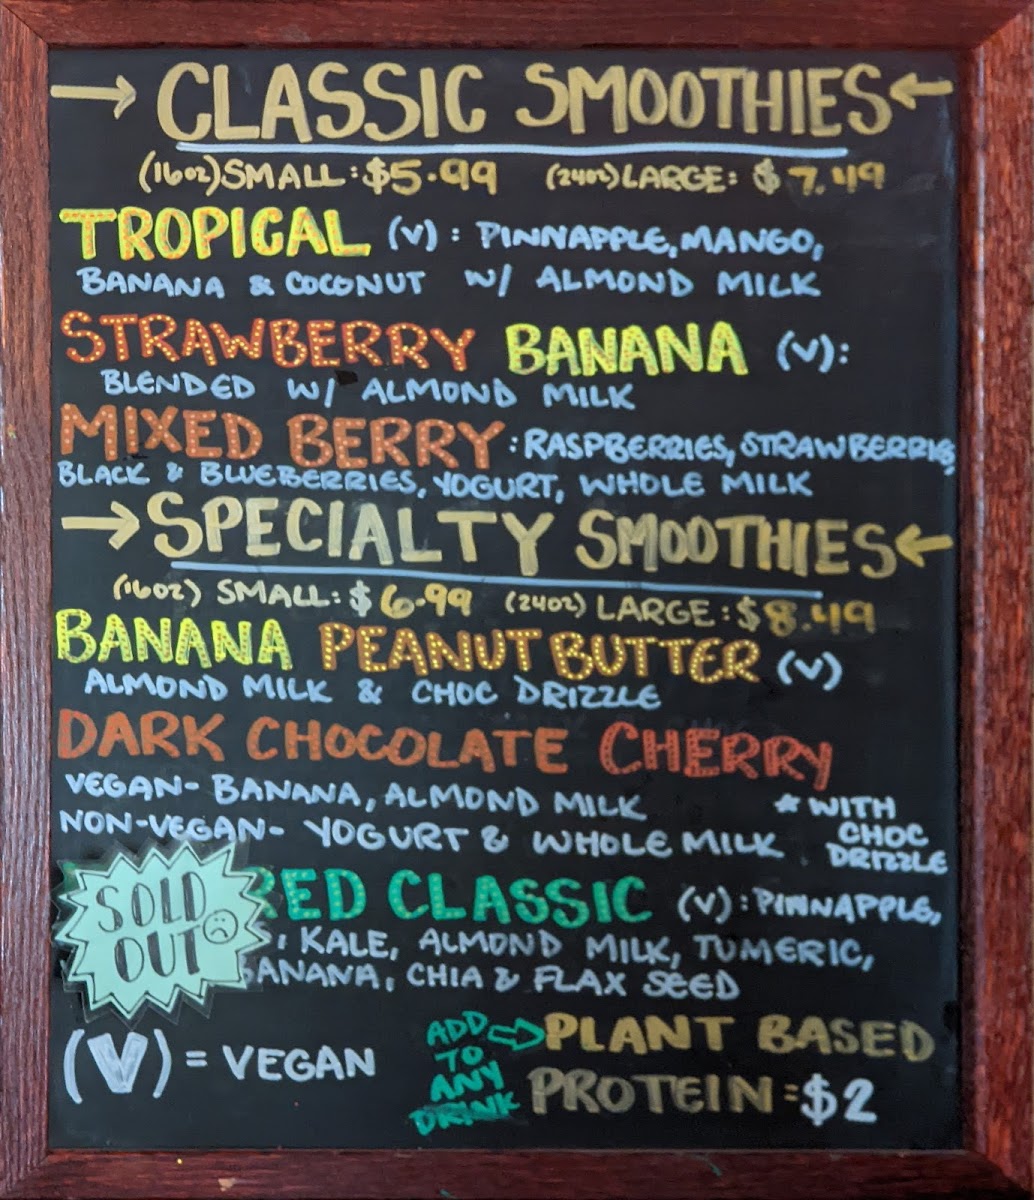 → CLASSIC SMOOTHIES ←
(16oz) SMALL: $5.99 (24oz) LARGE: $7.49
TROPICAL (V): PINNAPPLE, MANGO,
BANANA & COCONUT W/ ALMOND MILK
STRAWBERRY BANANA (V):
BLENDED W/ ALMOND MILK
MIXED BERRY: RASPBERRIES, STRAWBERRIES,
BLACK & BLUEBERRIES, YOGURT, WHOLE MILK
→ SPECIALTY SMOOTHIES ←
(16oz) SMALL: $6.99 (24oz) LARGE: $8.49
BANANA PEANUT BUTTER (V)
ALMOND MILK & CHOC DRIZZLE
DARK CHOCOLATE CHERRY
VEGAN- BANANA, ALMOND MILK
NON-VEGAN- YOGURT & WHOLE MILK
* WITH
CHOC
DRIZZLE
SOLD
OUT
RED CLASSIC (V): PINNAPPLE,
, KALE, ALMOND MILK, TUMERIC,
BANANA, CHIA & FLAX SEED
(V) = VEGAN
ADD
TO
ANY
DRINK
⇨ PLANT BASED
PROTEIN = $2